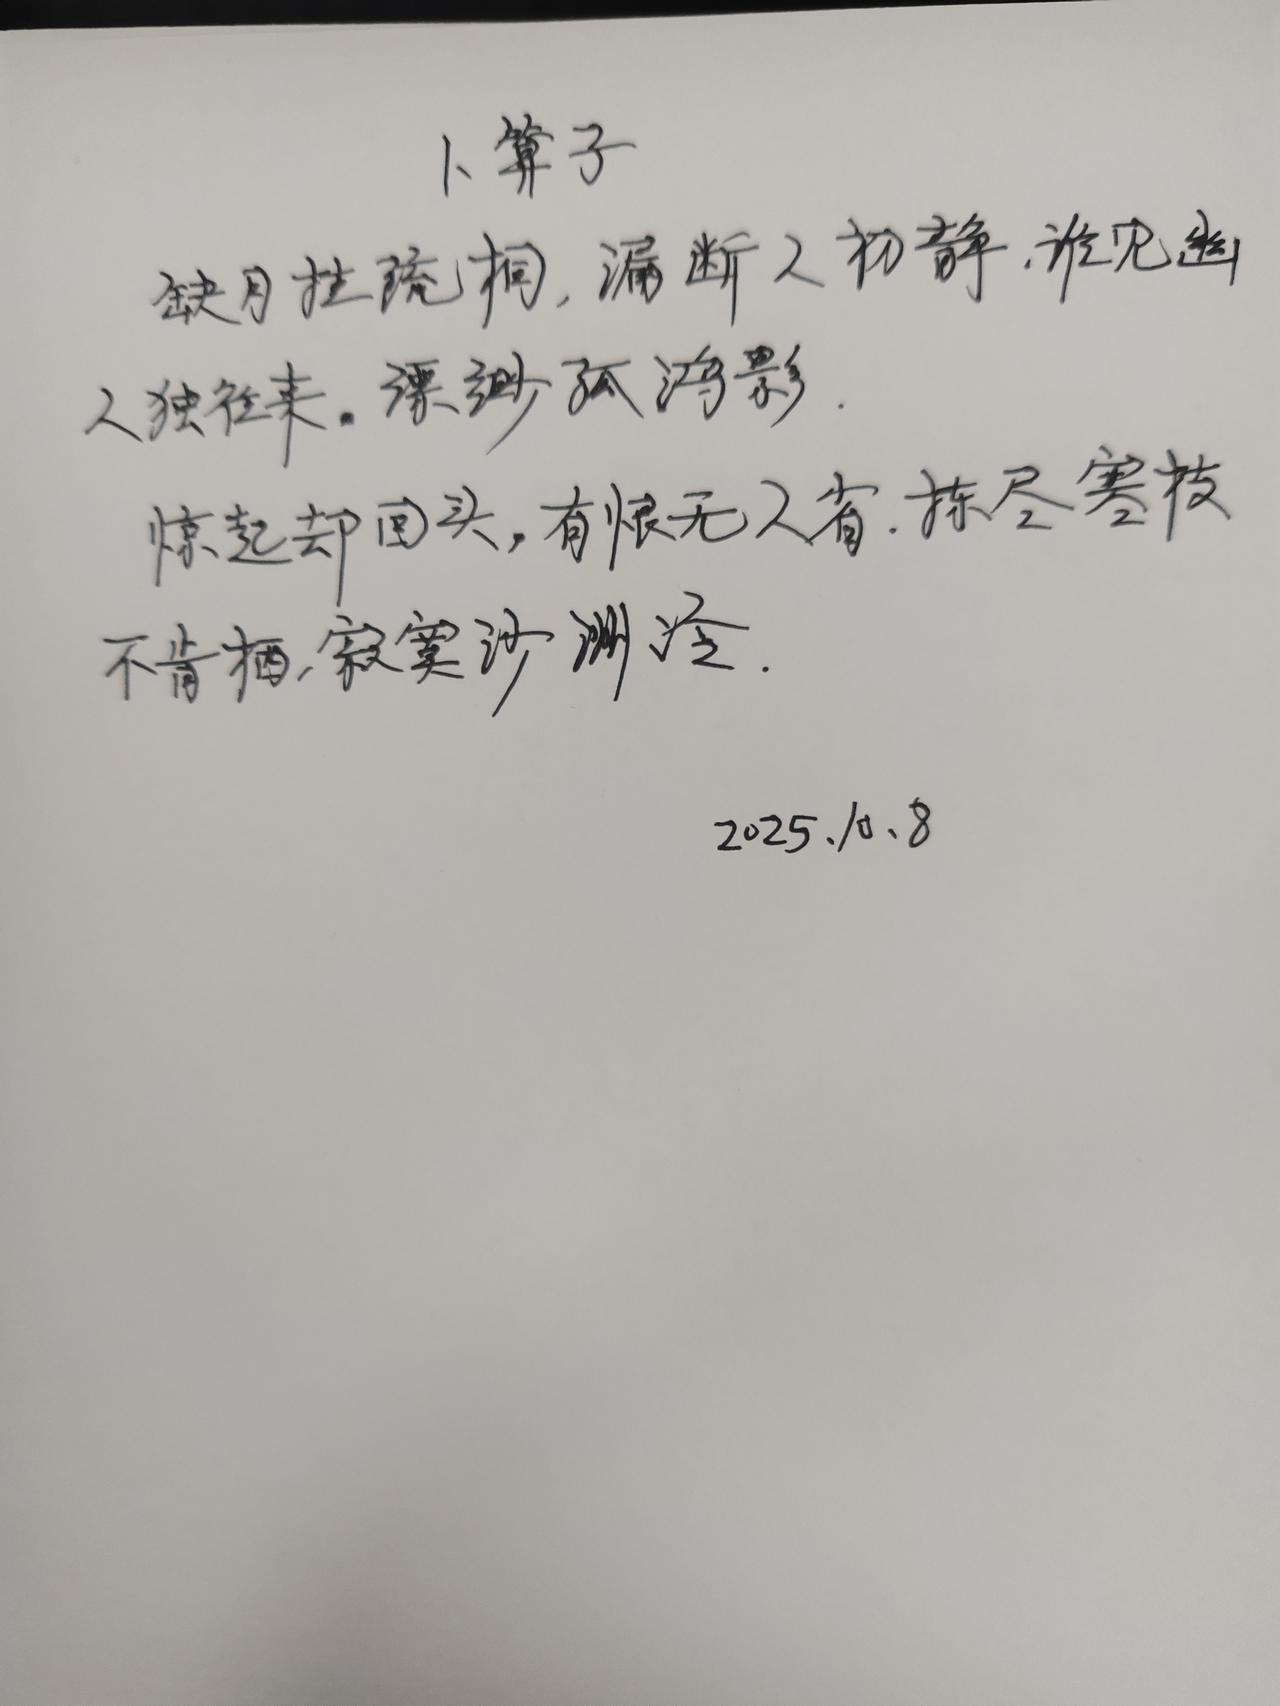 卜算子
缺月挂疏桐,漏断人初静.谁见幽
人独往来。漂渺孤鸿影.
惊起却回头,有恨无人省.拣尽寒枝
不肯栖,寂寞沙洲冷.
2025.10.8